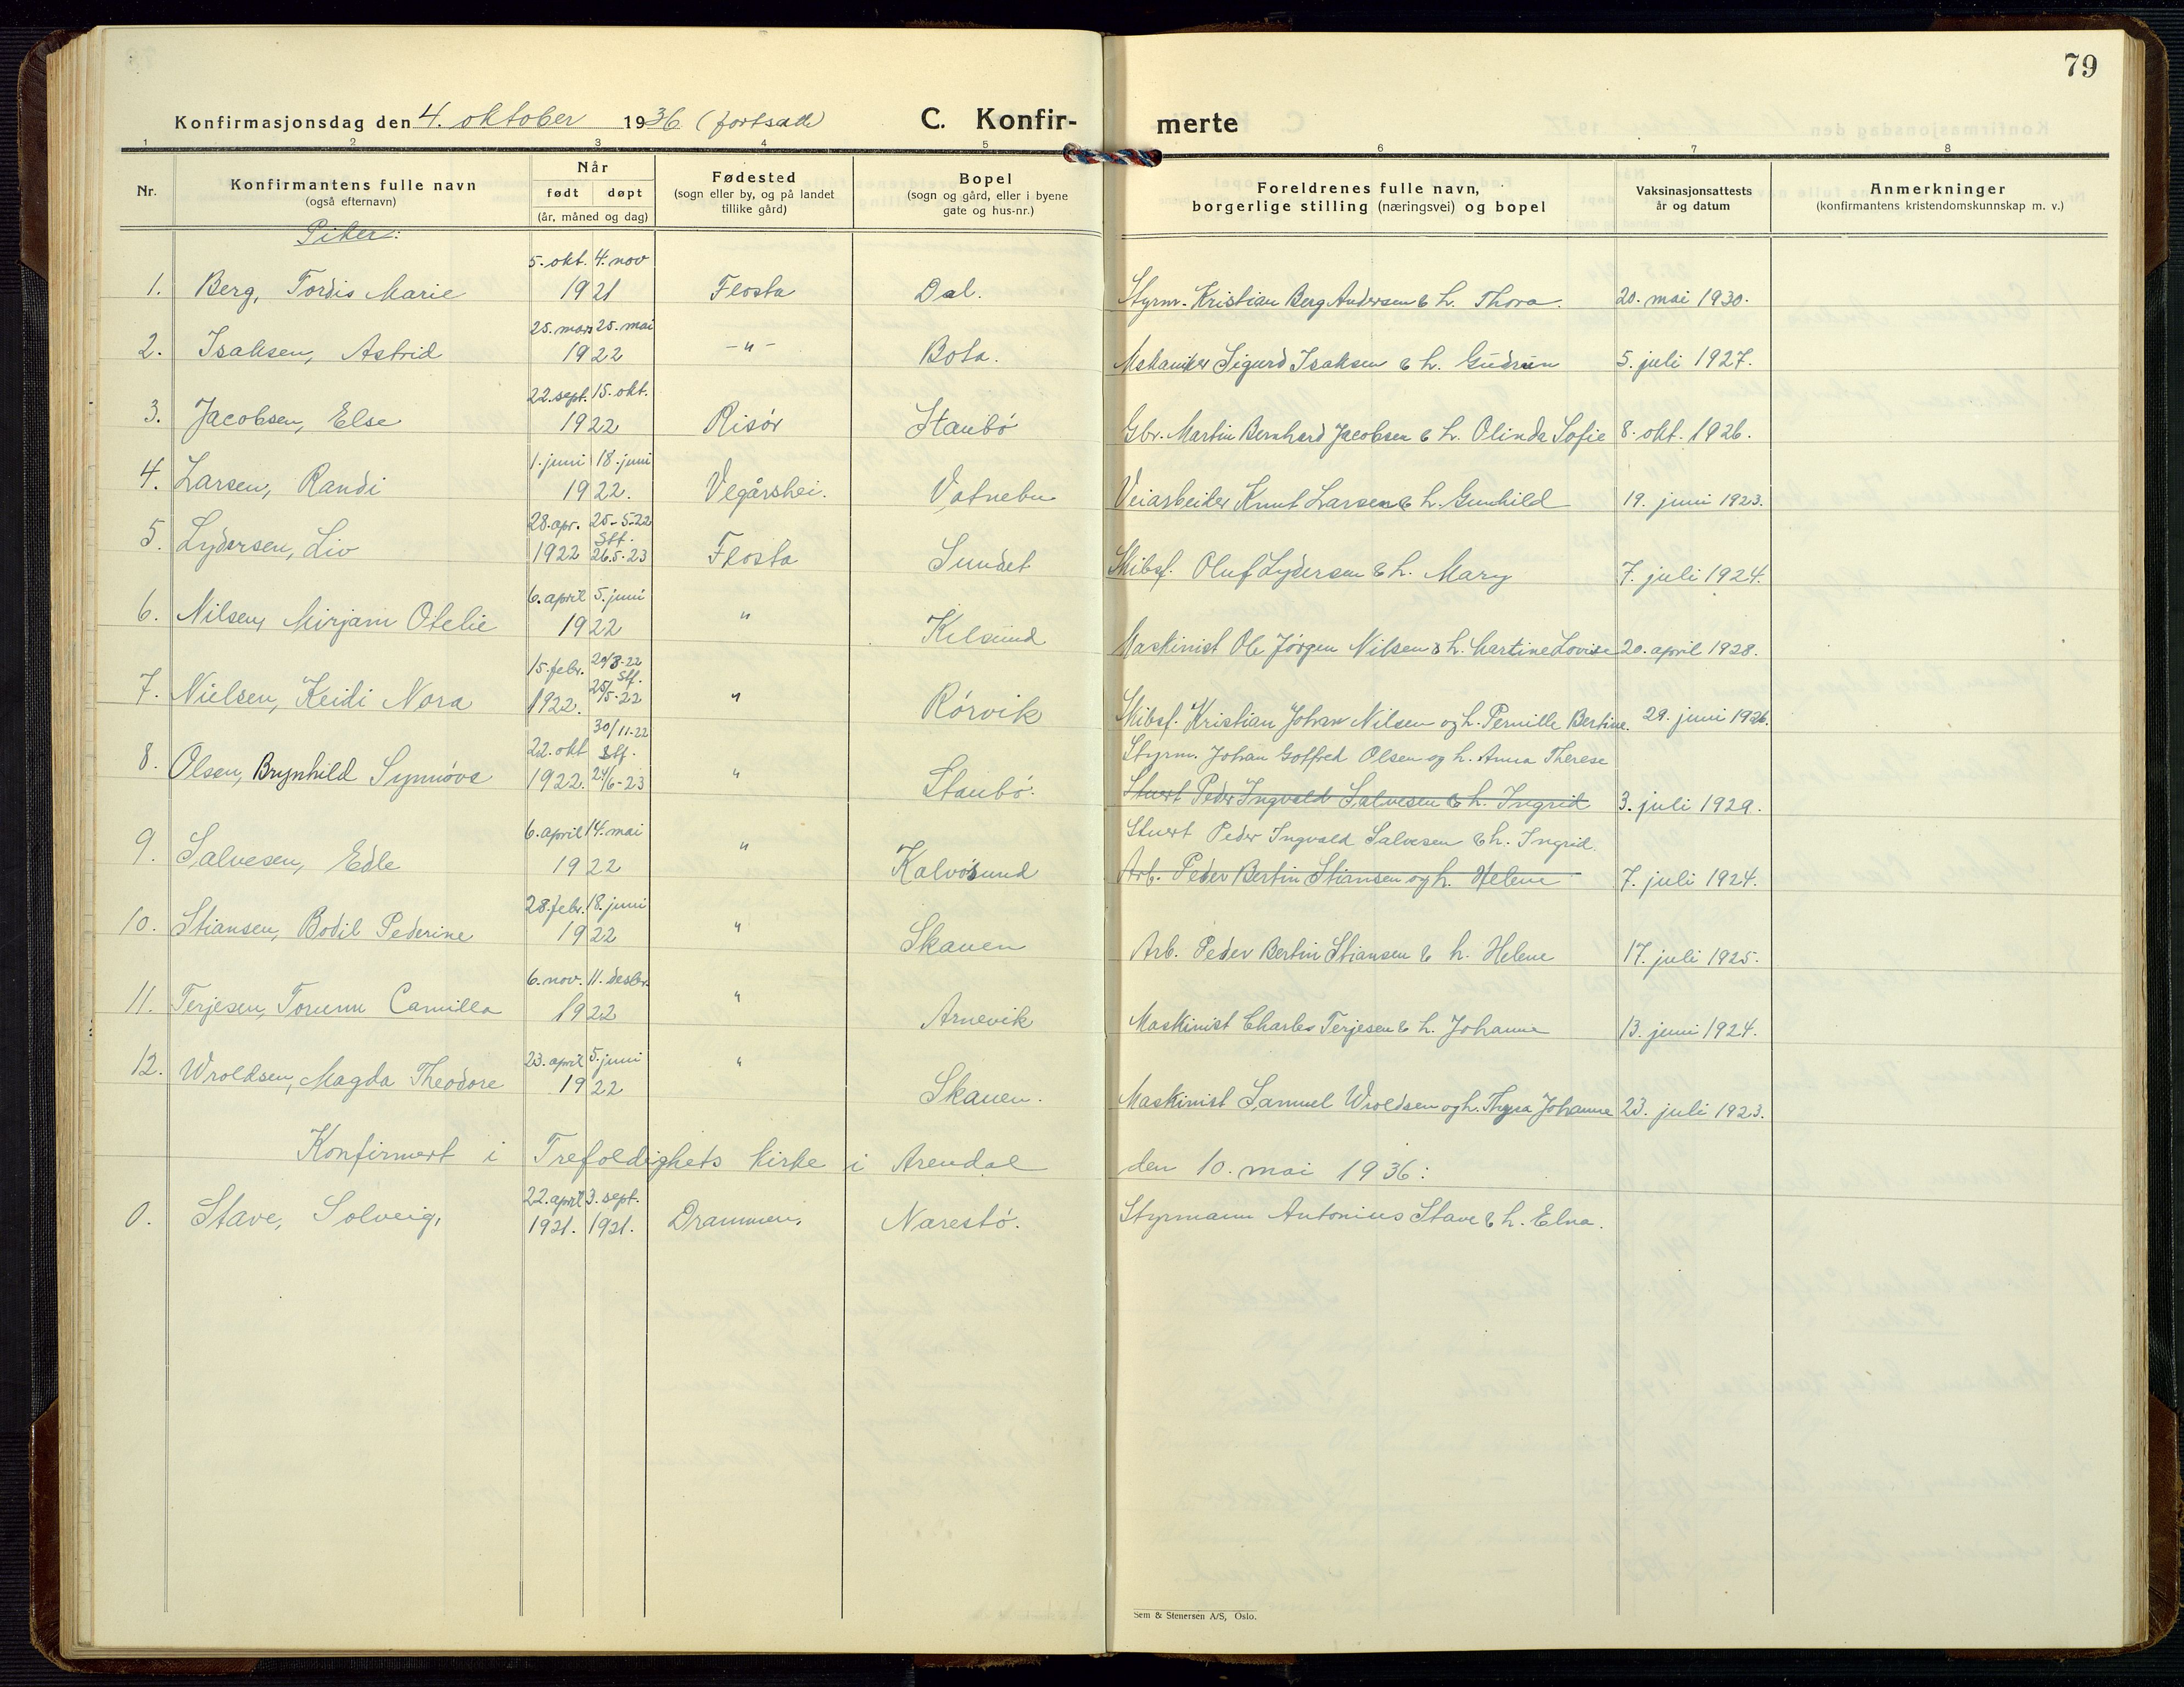 79
Konfirmasjonsdag den 4. oktober 1936 (fortsatt)
C. Konfir- merte
1 2 3 4 5 6 7 8
Nr.
Konfirmantens fulle navn
(også efternavn)
Når
født døpt
(år, måned og dag)
Fødested
(sogn eller by, og på landet
tillike gård)
Bopel
(sogn og gård, eller i byene
gate og hus-nr.)
Foreldrenes fulle navn,
borgerlige stilling (næringsvei) og bopel
Vaksinasjonsattests
år og datum
Anmerkninger
(konfirmantens kristendomskunnskap m. v.)
Piker:
5. okt. 4. nov
1. Berg, Tordis Marie 1921 Flosta Dal. Styrm. Kristian Berg Andersen & h. Thora. 20. mai 1930.
25. mars 25. mai
2. Isaksen, Astrid 1922 -"- Bota. Mekaniker Sigurd Isaksen & h. Gudrun 5. juli 1927.
22. sept. 15. okt.
3. Jacobsen, Else 1922 Risör Staubö Gbr. Martin Bernhard Jacobsen & h. Olinda Sofie 8. okt. 1926.
1. juni 18. juni
4. Larsen, Randi 1922. Vegårshei. Vatnebu Veiarbeider Knut Larsen & h. Gunhild 19. juni 1923.
28. apr. 25-5-22
Stf.
5. Lydersen, Liv 1922 26.5-23 Flosta Sundet Skibsf. Oluf Lydersen & h. Mary 7. juli 1924.
6. april 5. juni
6. Nilsen, Mirjam Otelie 1922 " Kilsund Maskinist Ole Jörgen Nilsen & h. Martine Lovise 20. april 1928.
15. febr. 20/3-22
Stf.
7. Nielsen, Heidi Nora 1922. 25/5-22 " Rörvik Skibsf. Kristian Johan Nilsen og h. Pernille Bertine. 29. juni 1926.
30/11-22
22. okt Stf. Styrm. Johan Gotfred Olsen og h. Anna Therese
8. Olsen, Brynhild Synnöve 1922. 24/6-23 " Staubö. Stuert Peder Ingvald Salvesen & h. Ingrid 3. juli 1929.
6. april 14. mai Stuert Peder Ingvald Salvesen & h. Ingrid.
9. Salvesen, Edle 1922 " Kalvösund Arb. Peder Bertin Stiansen og h. Helene 7. juli 1924.
28. febr. 18. juni
10. Stiansen, Bodil Pederine 1922 " Skauen Arb. Peder Bertin Stiansen & h. Helene 17. juli 1925.
6. nov. 11. desbr.
11. Terjesen, Torunn Camilla 1922 " Arnevik Maskinist Charles Terjesen & h. Johanne 13. juni 1924.
23. april 5. juni
12. Wroldsen, Magda Theodore 1922 " Skauen. Maskinist Samuel Wroldsen og h. Thyra Johanne 23. juli 1923.
Konfirmert i Trefoldighets kirke i Arendal den 10. mai 1936:
22. april 3. sept.
0. Stave, Solveig, 1921. 1921. Drammen. Narestö. Styrmann Antonius Stave & h. Elna.
Sem & Stenersen A/S, Oslo.